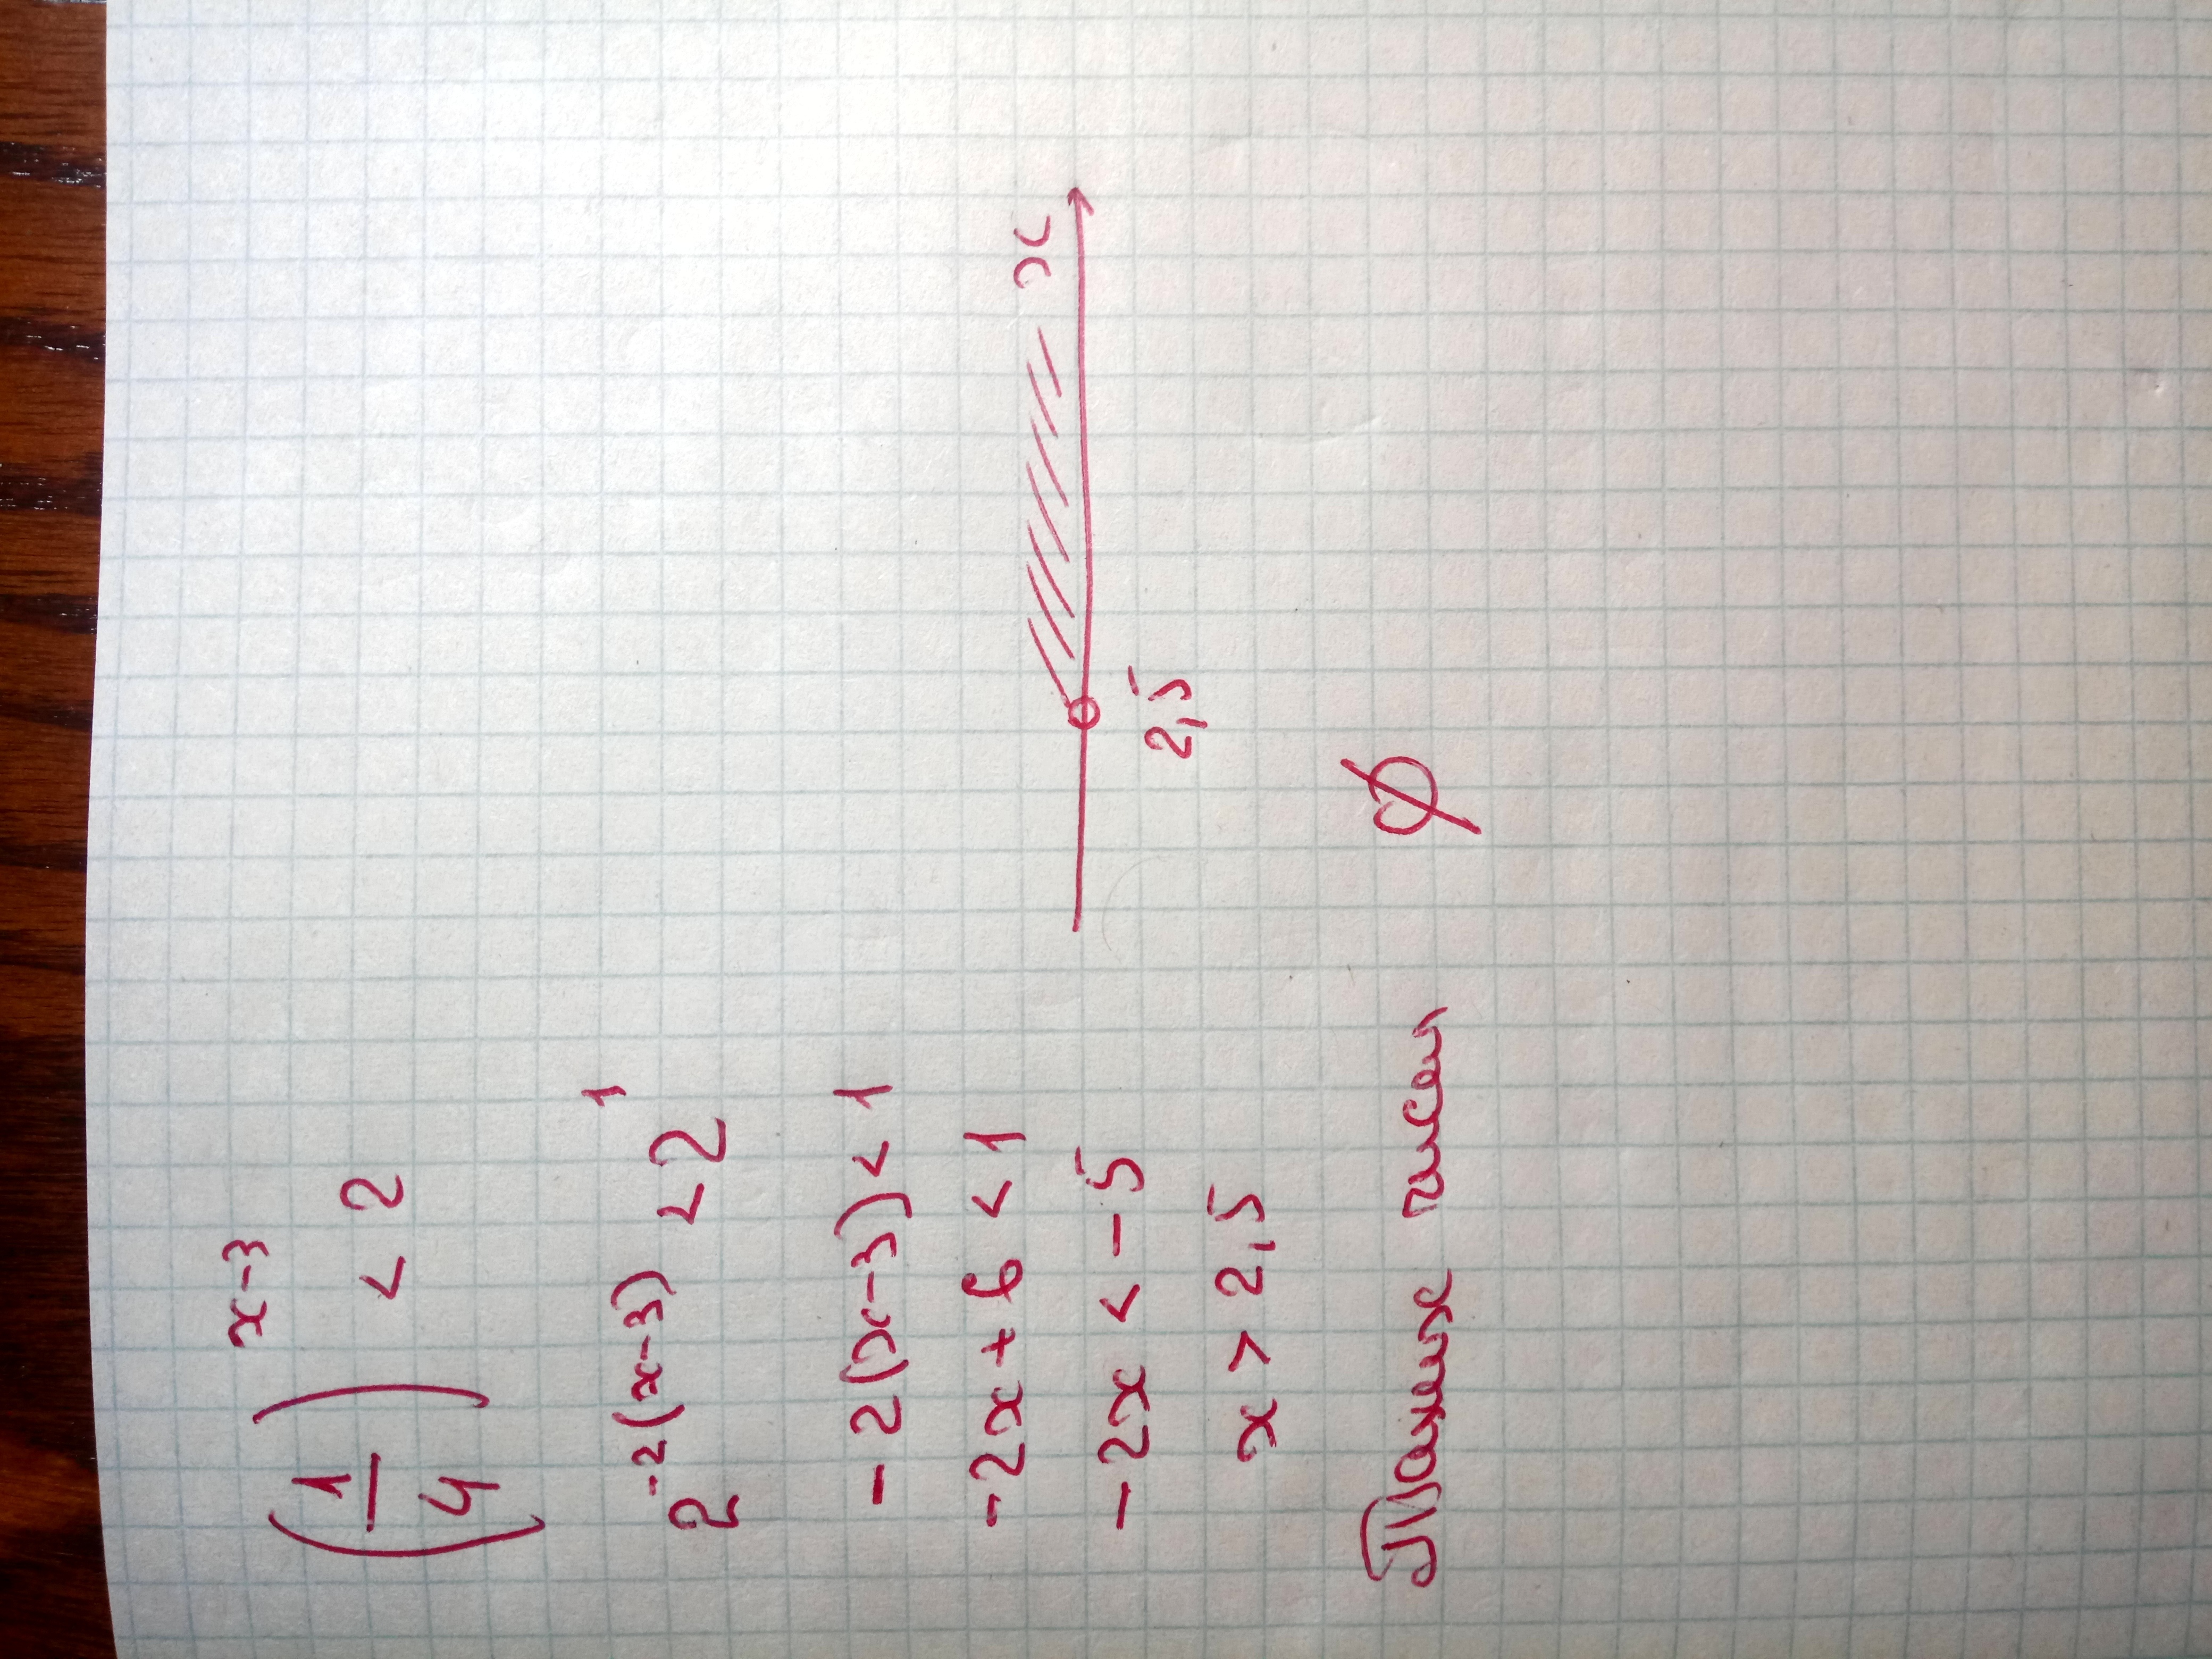 (1/4)^(x-3) < 2
2^(-2(x-3)) < 2^1
-2(x-3) < 1
-2x + 6 < 1
-2x < -5
x > 2,5
x
2,5
Таких чисел ∅